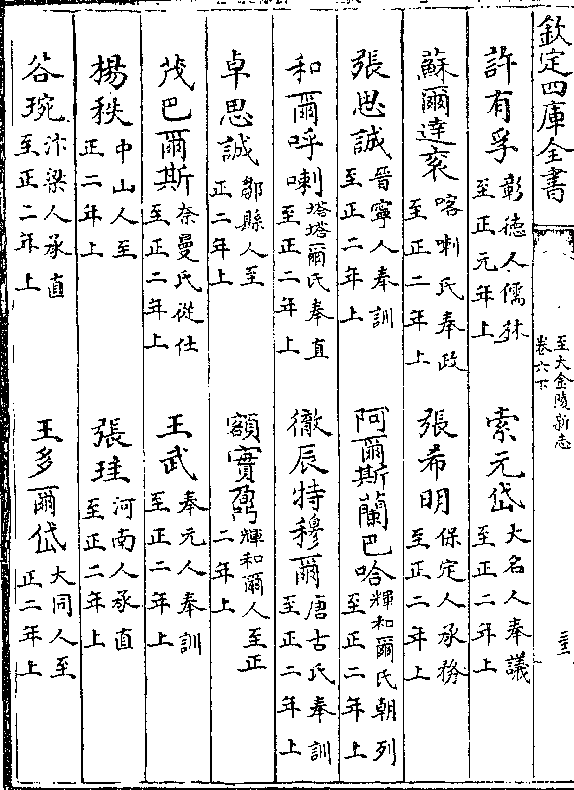 欽定四庫全書
至大金陵新志
卷六下
許有孚彰德人儒林至正元年上
索元岱大名人奉議至正二年上
蘇爾達袞喀喇氏奉政至正二年上
張希明保定人承務至正二年上
張思誠晉寧人奉訓至正二年上
阿爾斯蘭巴哈輝和爾氏朝列至正二年上
和爾呼喇塔塔爾氏奉直至正二年上
徹辰特穆爾唐古氏奉訓至正二年上
卓思誠鄒縣人至正二年上
額實鼐輝和爾人至正二年上
茂巴爾斯奈曼氏從仕至正二年上
王武奉元人奉訓至正二年上
楊秩中山人至正二年上
張珪河南人承直至正二年上
谷琬汴梁人承直至正二年上
王多爾岱大同人至正二年上